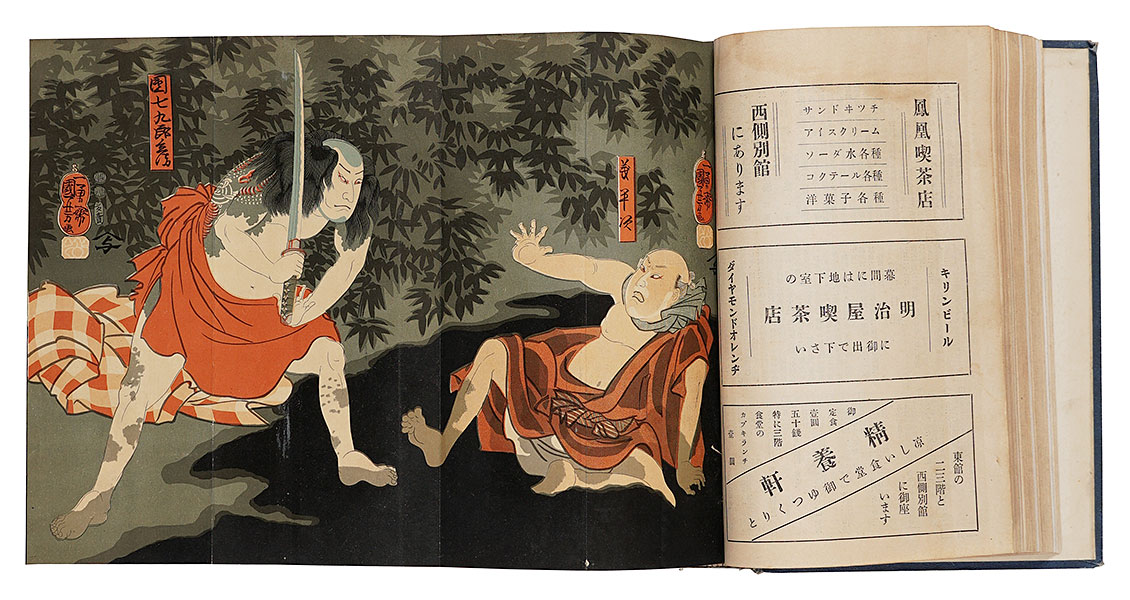 團七九郎兵衛
一勇斎
國芳画
義平次
一勇斎
國芳画
鳳凰喫茶店
サンドヰツチ
アイスクリーム
ソーダ水各種
コクテール各種
洋菓子各種
西側別館
にあります
キリンビール
幕間には地下室の
明治屋喫茶店
に御出で下さい
ダイヤモンドオレンヂ
東館の
二三階と
西側別館
に御座
います
精養軒
涼しい食堂で御ゆつくりと
御
定食
壹圓
五十錢
特に三階
食堂の
カブキランチ
壹圓